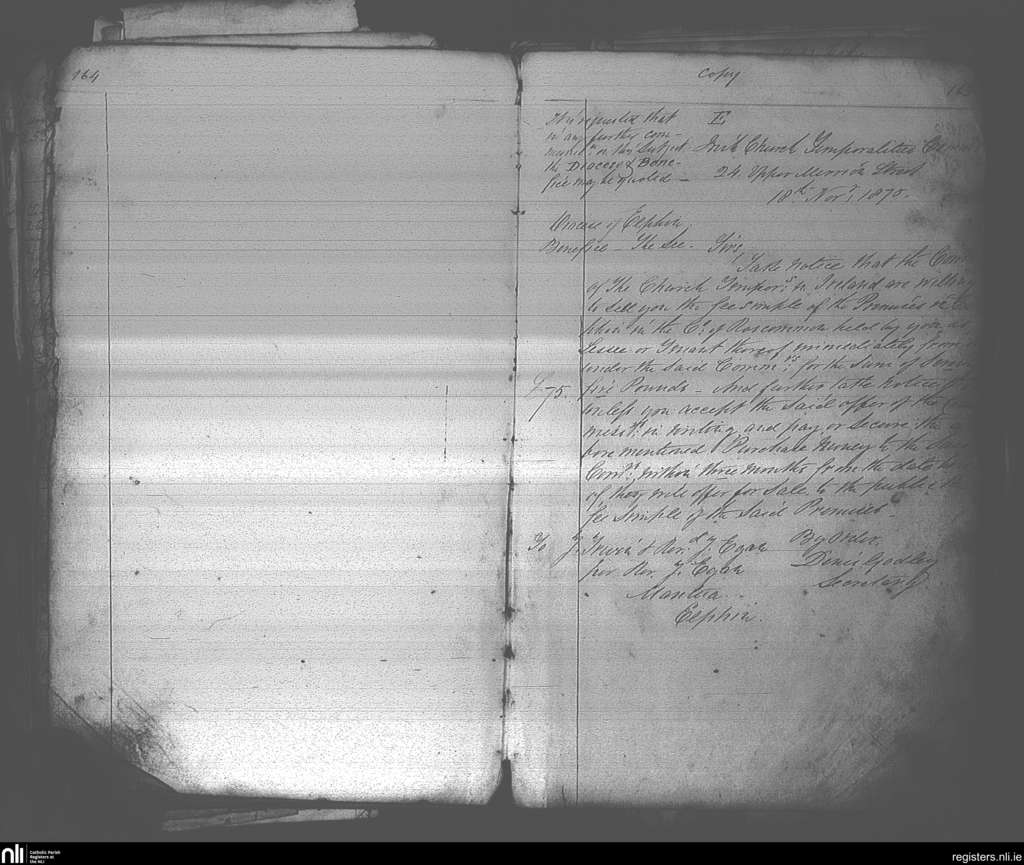 164
Copy
163
It is requested that
in any further com-
munictn on this Subject
the Diocese & Bene-
fice may be quoted -
E
Irish Church Temporalities Comm
24 Upper Merrion Street
18th Novr 1870.
Diocese of Elphin
Benefice - The See - Sirs,
Take notice that the Comm
of The Church Tempors in Ireland are willing
to sell you the fee simple of the Premises in El
phin in the Co. of Roscommon held by you as
Lessee or Tenant thereof immediately from
under the Said Commrs for the Sum of Seventy
£75. five Pounds - And further take notice
unless you accept the Said offer of the Com
missrs in writing and pay or secure the a
bove mentioned Purchase Money to the Said
Comrs within three months from the date
of they will offer for Sale to the public the
fee Simple of the Said Premises -
By Order,
Denis Godley
Secretary.
To J. & Revd J. Egan
per Rev. J. Egan
Mantua
Elphin.
nli Catholic Parish
Registers at
the NLI
registers.nli.ie